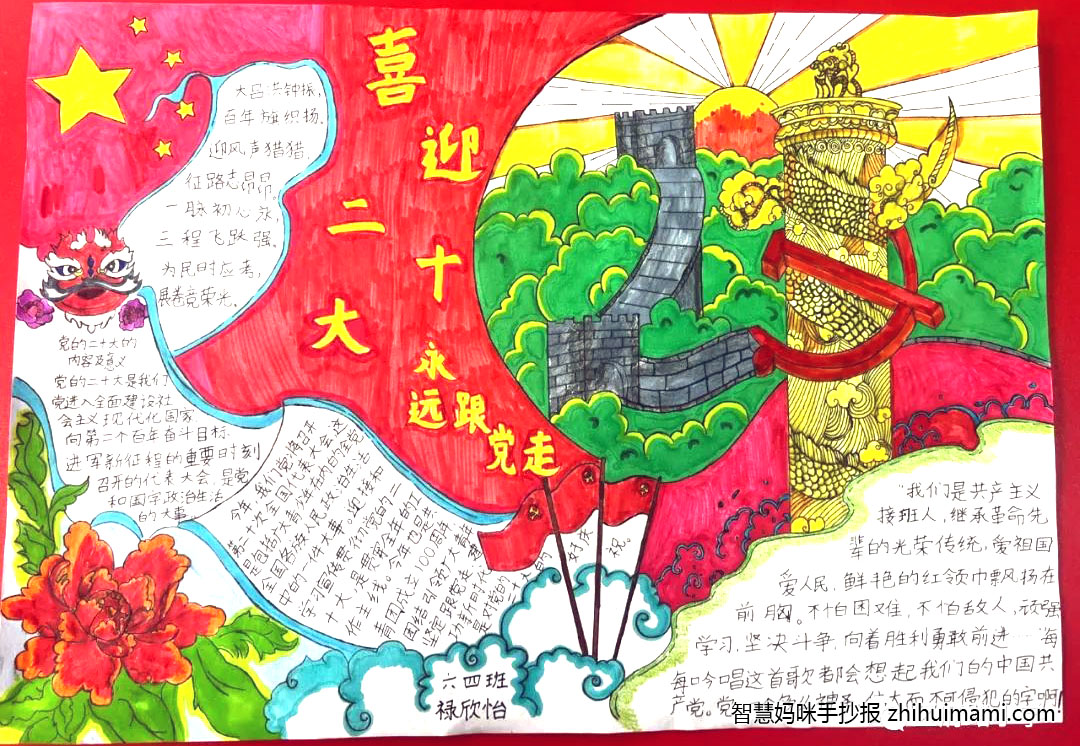 喜迎二十大
永远跟党走
大吕洪钟振,
百年旗织扬.
迎风声猎猎,
征路志昂昂.
一脉初心永,
三程飞跃强.
为民时应考,
展卷竟荣光.
党的二十大的
内容及意义
党的二十大是我们
党进入全面建设社
会主义现代化国家
向第二个百年奋斗目标
进军新征程的重要时刻
召开的代表大会,是党
和国家政治生活
的大事
今年,我们党将召开
第二十次全国代表大会,这
是包括广大青少年在内的全党
全国各族人民政治生活
中的一件大事。迎接和
学习宣传贯彻党的二
十大,是贯穿全年的工
作主线。今年也是共
青团成立100周年
团结动员广大青年
坚定跟党走、建
功新时代
是对党的
二十大的
好庆
祝。
六四班
禄欣怡
"我们是共产主义
接班人,继承革命先
辈的光荣传统,爱祖国
爱人民,鲜艳的红领巾飘扬在
前胸。不怕困难,不怕敌人,顽强
学习,坚决斗争,向着胜利勇敢前进……每
每吟唱这首歌都会想起我们的中国共
产党。党
伟大而不可侵犯的字啊
智慧妈咪手抄报 zhihuimami.com